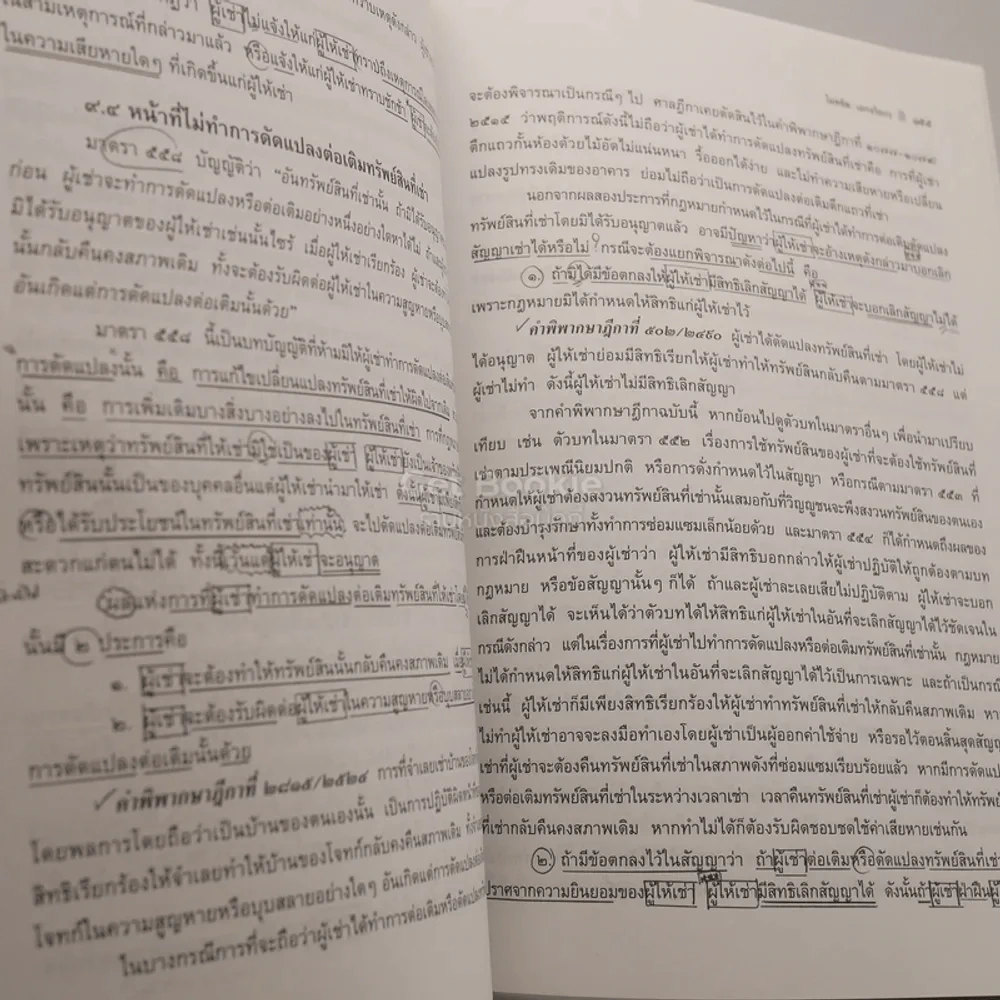 ในสามเหตุการณ์ที่กล่าวมาแล้ว หรือแจ้งให้แก่ผู้ให้เช่าทราบชักช้า
ในความเสียหายใดๆ ที่เกิดขึ้นแก่ผู้ให้เช่า
๙.๔ หน้าที่ไม่ทำการดัดแปลงต่อเติมทรัพย์สินที่เช่า
มาตรา ๕๕๘ บัญญัติว่า "อันทรัพย์สินที่เช่านั้น ถ้ามิได้รับอนุญาต
ก่อน ผู้เช่าจะทำการดัดแปลงหรือต่อเติมอย่างหนึ่งอย่างใดหาได้ไม่ ถ้าและผู้เช่า
มิได้รับอนุญาตของผู้ให้เช่าเช่นนั้นไซร้ เมื่อผู้ให้เช่าเรียกร้อง ผู้เช่าจะต้อง
นั้นกลับคืนคงสภาพเดิม ทั้งจะต้องรับผิดต่อผู้ให้เช่าในความสูญหายหรือ
อันเกิดแต่การดัดแปลงต่อเติมนั้นด้วย"
มาตรา ๕๕๘ นี้เป็นบทบัญญัติที่ห้ามมิให้ผู้เช่าทำการดัดแปลงต่อเติม
การดัดแปลงนั้น คือ การแก้ไขเปลี่ยนแปลงทรัพย์สินที่เช่าให้ผิดไปจากเดิม
นั้น คือ การเพิ่มเติมบางสิ่งบางอย่างลงไปในทรัพย์สินที่เช่า
เพราะเหตุว่าทรัพย์สินที่ให้เช่ามิใช่เป็นของผู้เช่า ผู้ให้เช่ายังเป็นเจ้าของ
ทรัพย์สินนั้นเป็นของบุคคลอื่นแต่ผู้ให้เช่านำมาให้เช่า ดังนั้นผู้เช่า
หรือได้รับประโยชน์ในทรัพย์สินที่เช่าเท่านั้น จะไปดัดแปลงต่อเติม
สะดวกแก่ตนไม่ได้ ทั้งนี้เว้นแต่ผู้ให้เช่าจะอนุญาต
ผลแห่งการที่ผู้เช่าทำการดัดแปลงต่อเติมทรัพย์สินที่ให้เช่า
นั้นมี ๒ ประการคือ
๑. ผู้เช่าจะต้องทำให้ทรัพย์สินนั้นกลับคืนคงสภาพเดิม
๒. ผู้เช่าจะต้องรับผิดต่อผู้ให้เช่าในความสูญหายหรือบุบสลาย
การดัดแปลงต่อเติมนั้นด้วย
คำพิพากษาฎีกาที่ ๒๘๑๕/๒๕๒๔ การที่จำเลยเช่าบ้านของโจทก์
โดยพลการโดยถือว่าเป็นบ้านของตนเองนั้น เป็นการปฏิบัติผิดหน้าที่
สิทธิเรียกร้องให้จำเลยทำให้บ้านของโจทก์กลับคงคืนสภาพเดิม
โจทก์ในความสูญหายหรือบุบสลายอย่างใดๆ อันเกิดแต่การดัดแปลงต่อเติม
ในบางกรณีการที่จะถือว่าผู้เช่าได้ทำการต่อเติมหรือดัดแปลง
จะต้องพิจารณาเป็นกรณีๆ ไป ศาลฎีกาเคยตัดสินไว้ในคำพิพากษาฎีกาที่ ๑๐๗๗-๑๐๗๙/
๒๕๑๕ ว่าพฤติการณ์ดังนี้ไม่ถือว่าผู้เช่าได้ทำการดัดแปลงทรัพย์สินที่เช่าคือ การที่ผู้เช่า
ตึกแถวกั้นห้องด้วยไม้อัดไม่แน่นหนา รื้อออกได้ง่าย และไม่ทำความเสียหายหรือเปลี่ยน
แปลงรูปทรงเดิมของอาคาร ย่อมไม่ถือว่าเป็นการดัดแปลงต่อเติมตึกแถวที่เช่า
นอกจากผลสองประการที่กฎหมายกำหนดไว้ในกรณีที่ผู้เช่าได้ทำการต่อเติมดัดแปลง
ทรัพย์สินที่เช่าโดยมิได้รับอนุญาตแล้ว อาจมีปัญหาว่าผู้ให้เช่าจะอ้างเหตุดังกล่าวมาบอกเลิก
สัญญาเช่าได้หรือไม่ ? กรณีจะต้องแยกพิจารณาดังต่อไปนี้ คือ
๑. ถ้ามิได้มีข้อตกลงให้ผู้ให้เช่ามีสิทธิเลิกสัญญาได้ ผู้ให้เช่าจะบอกเลิกสัญญาไม่ได้
เพราะกฎหมายมิได้กำหนดให้สิทธิแก่ผู้ให้เช่าไว้
คำพิพากษาฎีกาที่ ๕๐๒/๒๔๙๐ ผู้เช่าได้ดัดแปลงทรัพย์สินที่เช่า โดยผู้ให้เช่าไม่
ได้อนุญาต ผู้ให้เช่าย่อมมีสิทธิเรียกให้ผู้เช่าทำให้ทรัพย์สินกลับคืนตามมาตรา ๕๕๘ แต่
ผู้เช่าไม่ทำ ดังนี้ผู้ให้เช่าไม่มีสิทธิเลิกสัญญา
จากคำพิพากษาฎีกาฉบับนี้ หากย้อนไปดูตัวบทในมาตราอื่นๆ เพื่อนำมาเปรียบ
เทียบ เช่น ตัวบทในมาตรา ๕๕๒ เรื่องการใช้ทรัพย์สินของผู้เช่าที่จะต้องใช้ทรัพย์สินที่
เช่าตามประเพณีนิยมปกติ หรือการดั่งกำหนดไว้ในสัญญา หรือกรณีตามมาตรา ๕๕๓ ที่
กำหนดให้ผู้เช่าต้องสงวนทรัพย์สินที่เช่านั้นเสมอกับที่วิญญูชนจะพึงสงวนทรัพย์สินของตนเอง
และต้องบำรุงรักษาทั้งทำการซ่อมแซมเล็กน้อยด้วย และมาตรา ๕๕๔ ก็ได้กำหนดถึงผลของ
การฝ่าฝืนหน้าที่ของผู้เช่าว่า ผู้ให้เช่ามีสิทธิบอกกล่าวให้ผู้เช่าปฏิบัติให้ถูกต้องตามบท
กฎหมาย หรือข้อสัญญานั้นๆ ก็ได้ ถ้าและผู้เช่าละเลยเสียไม่ปฏิบัติตาม ผู้ให้เช่าจะบอก
เลิกสัญญาได้ จะเห็นได้ว่าตัวบทได้ให้สิทธิแก่ผู้ให้เช่าในอันที่จะเลิกสัญญาได้ไว้ชัดเจนใน
กรณีดังกล่าว แต่ในเรื่องการที่ผู้เช่าไปทำการดัดแปลงหรือต่อเติมทรัพย์สินที่เช่านั้น กฎหมาย
ไม่ได้กำหนดให้สิทธิแก่ผู้ให้เช่าในอันที่จะเลิกสัญญาได้ไว้เป็นการเฉพาะ และถ้าเป็นกรณี
เช่นนี้ ผู้ให้เช่าก็มีเพียงสิทธิเรียกร้องให้ผู้เช่าทำทรัพย์สินที่เช่าให้กลับคืนสภาพเดิม หา
ไม่ทำผู้ให้เช่าอาจจะลงมือทำเองโดยผู้เช่าเป็นผู้ออกค่าใช้จ่าย หรือรอไว้ตอนสิ้นสุดสัญญา
เช่าที่ผู้เช่าจะต้องคืนทรัพย์สินที่เช่าในสภาพดังที่ซ่อมแซมเรียบร้อยแล้ว หากมีการดัดแปล
หรือต่อเติมทรัพย์สินที่เช่าในระหว่างเวลาเช่า เวลาคืนทรัพย์สินที่เช่าผู้เช่าก็ต้องทำให้ทรัพย์
ที่เช่ากลับคืนสภาพเดิม หากทำไม่ได้ก็ต้องรับผิดชอบชดใช้ค่าเสียหายเช่นกัน
๒. ถ้ามีข้อตกลงไว้ในสัญญาว่า ถ้าผู้เช่าต่อเติมหรือดัดแปลงทรัพย์สินที่เช่า
ปราศจากความยินยอมของผู้ให้เช่า ผู้ให้เช่ามีสิทธิเลิกสัญญาได้ ดังนั้นถ้าผู้เช่าฝ่าฝืนผู้